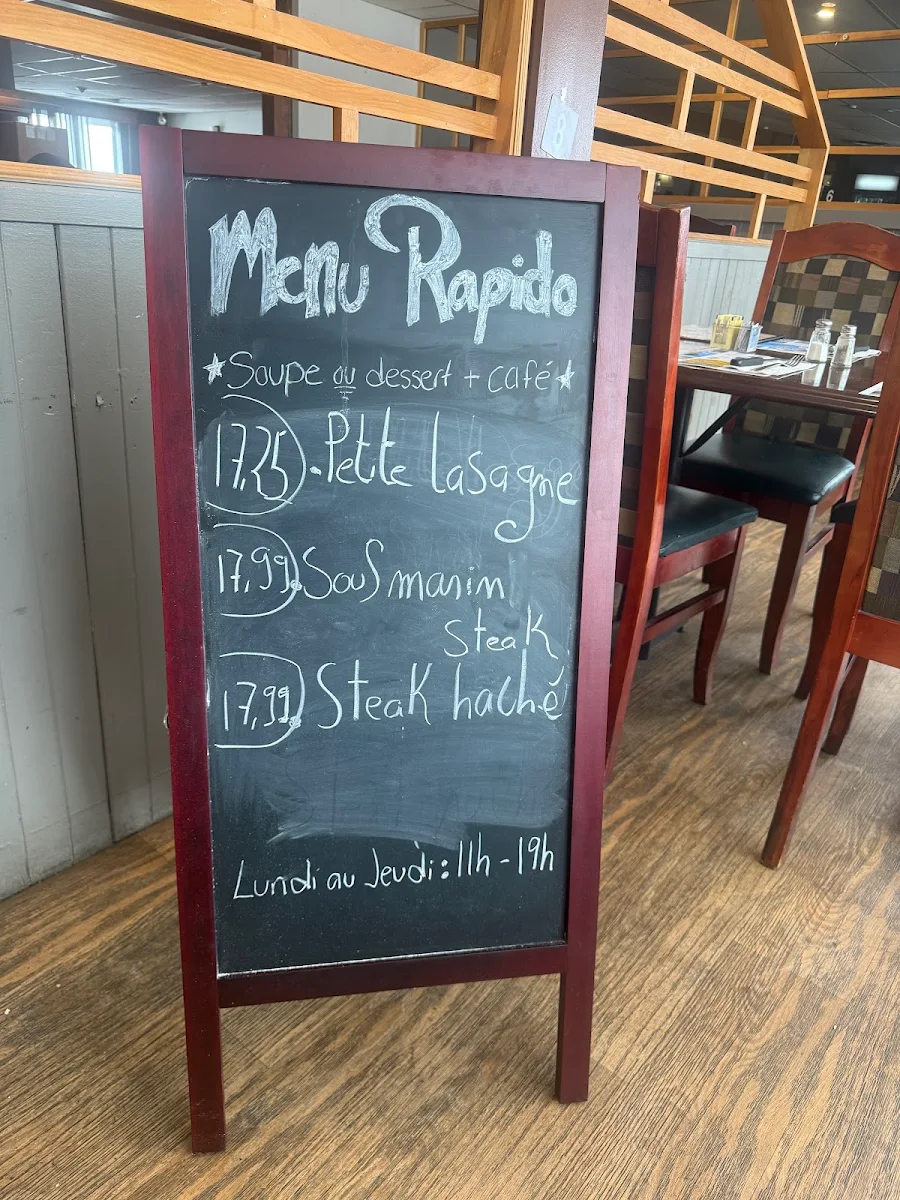 Menu Rapido
Soupe ou dessert + café
17,25 • Petite lasagne
17,99 • Sous marin
steak
17,99 • Steak haché
Lundi au Jeudi : 11h - 19h
8
6